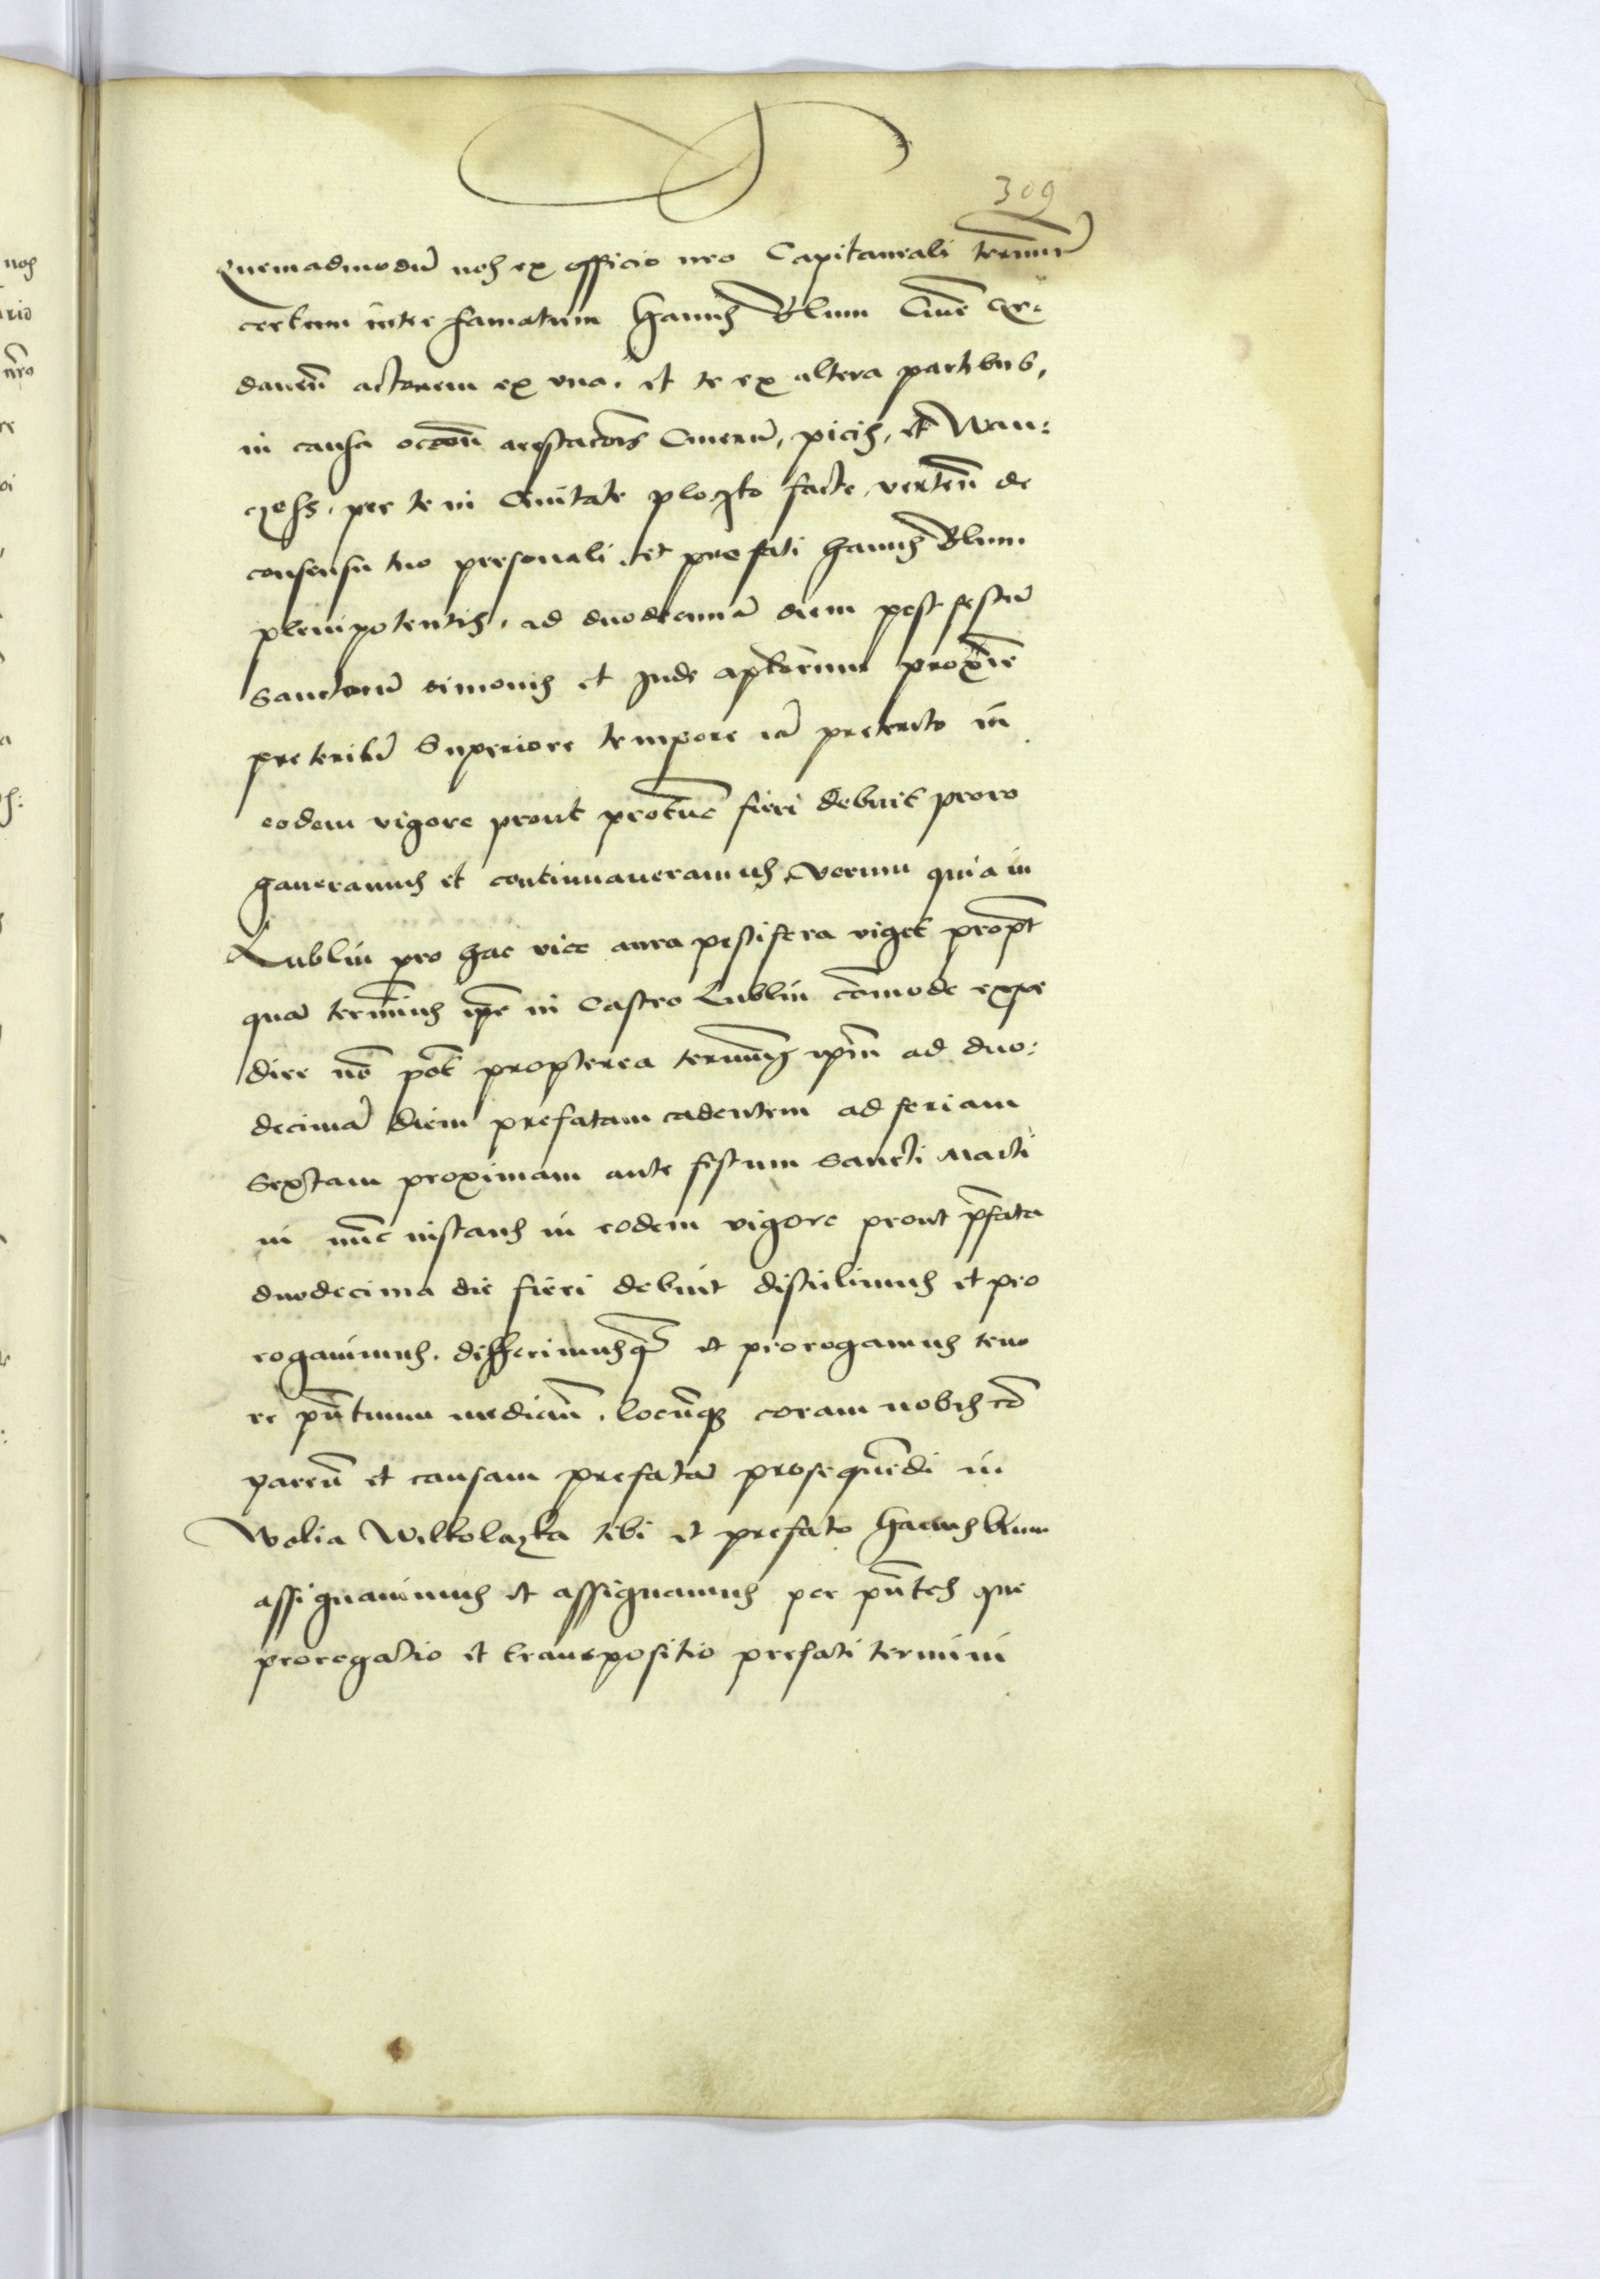 309
Quemadmodu nos ex officio nro Capitaneali terminu
certum inter famatum Hannus Blum Civem Ge-
danen actorem ex una. et te ex altera partibus,
in causa occoem arestacois Cinerum, picis, et Wan:
czoss, per te in Civitate ploczko facte, verten de
consensu tuo personali et prefati Hannus Blum
plenipotentis, ad duodecima diem post festu
Sanctoru simonis et Jude aplorum proxie
preteritu Superiore tempore ia preterito in
eodem vigore prout protunc fieri debuit proro
gaveramus et continuaveramus, verum quia in
Lublin pro hac vice aura pestifera viget propt
qua terminus ipe in Castro Lublin comode expe
dire no pot propterea terminu ipm ad duo:
decima diem prefatam cadentem ad feriam
Sextam proximam ante festum Sancti Marti
ni nunc instans in eodem vigore prout pfata
duodecima die fieri debuit distulimus et pro
rogavimus. differimusq et prorogamus teno
re pntium median. locumq coram nobis co
paren et causam prefata prosequendi in
Wolia Wilkolazka tibi et prefato Hannus blum
assignavimus et assignamus per pntes que
prorogatio et transpositio prefati termini